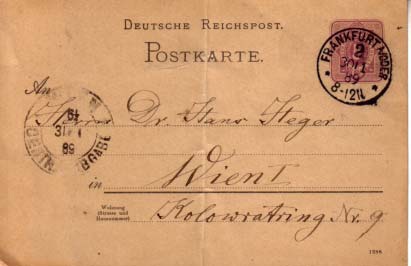 DEUTSCHE REICHSPOST.
POSTKARTE.
FRANKFURT A/ODER
2
89
8-12N
An
Herrn Dr. Hans Steger
89
in Wien I
Wohnung
(Strasse und
Hausnummer)
Kolowratring Nr. 9